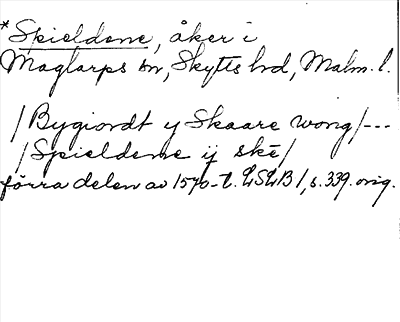 *Spieldene, åker i
Maglarps sn, Skytts hd, Malm. l.
/Bygiordt y Skaare wong/---
/Spieldene ij ske/
förra delen av 1570-t. LSLB 1, s. 339. orig.